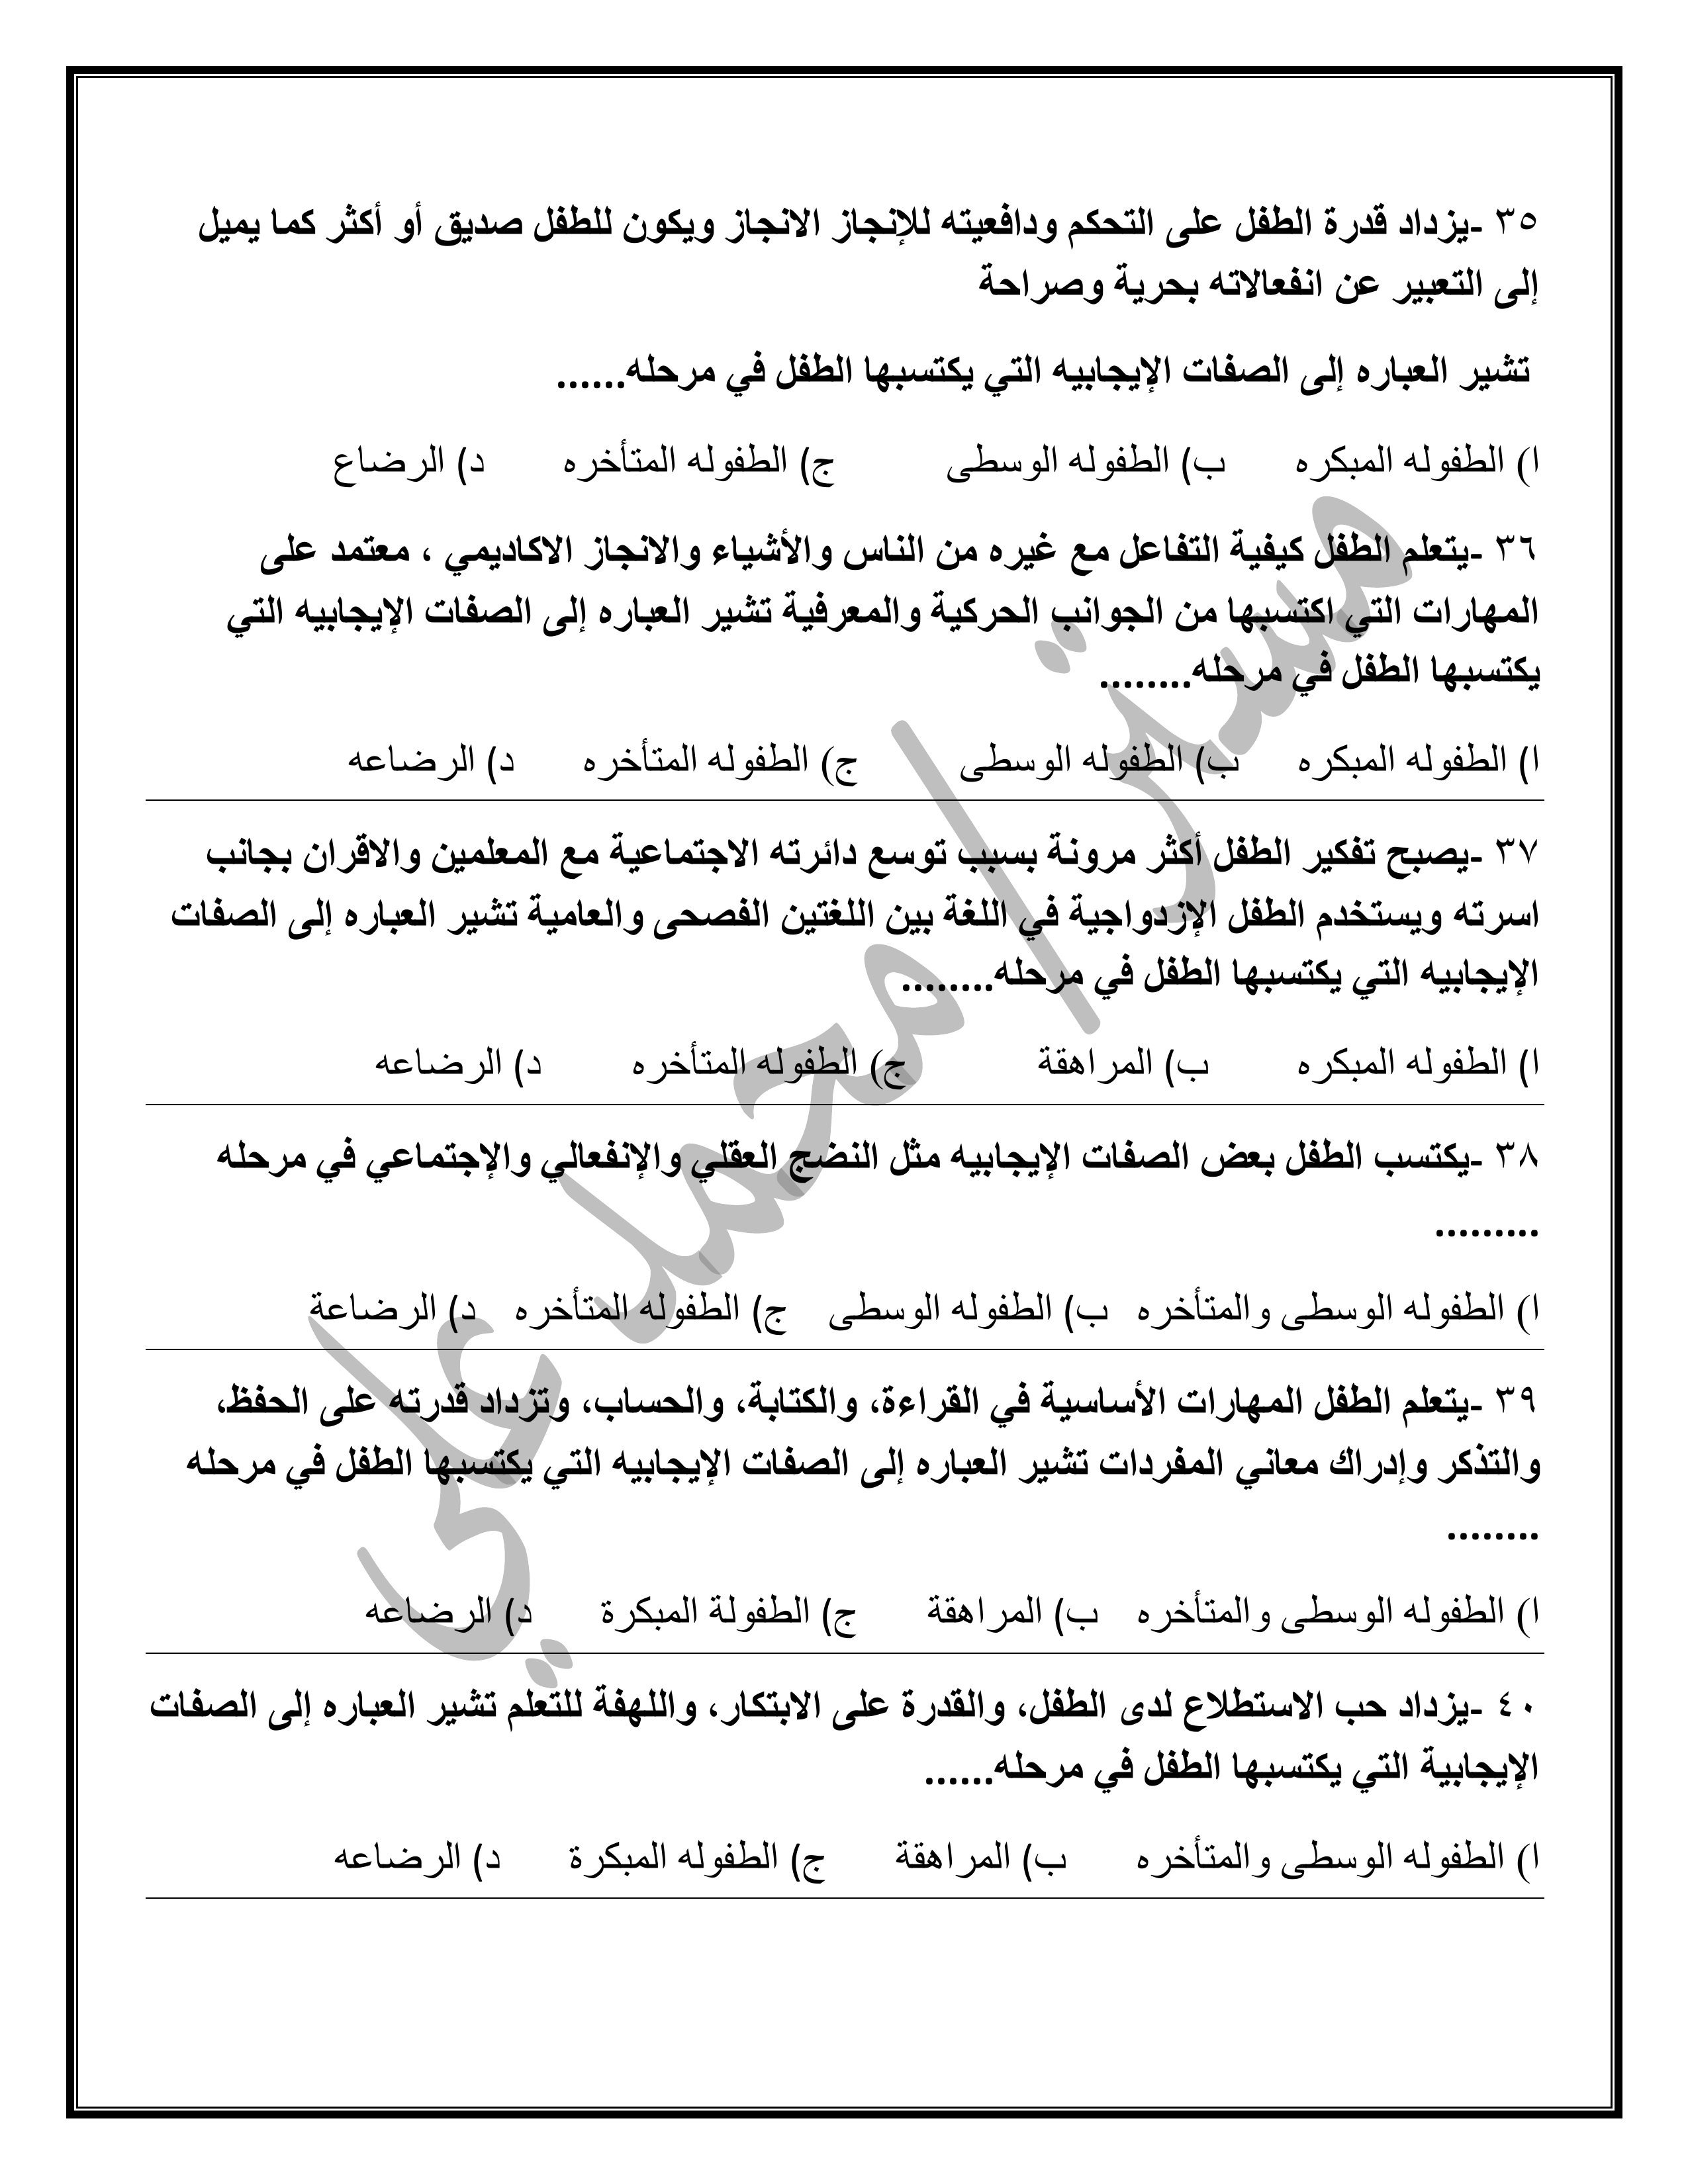 ٣٥ -يزداد قدرة الطفل على التحكم ودافعيته للإنجاز الانجاز ويكون للطفل صديق أو أكثر كما يميل
إلى التعبير عن انفعالاته بحرية وصراحة
تشير العباره إلى الصفات الإيجابيه التي يكتسبها الطفل في مرحله......
ا) الطفوله المبكره ب) الطفوله الوسطى ج) الطفوله المتأخره د) الرضاع
٣٦ -يتعلم الطفل كيفية التفاعل مع غيره من الناس والأشياء والانجاز الاكاديمي ، معتمد على
المهارات التي اكتسبها من الجوانب الحركية والمعرفية تشير العباره إلى الصفات الإيجابيه التي
يكتسبها الطفل في مرحله........
ا) الطفوله المبكره ب) الطفوله الوسطى ج) الطفوله المتأخره د) الرضاعه
٣٧ -يصبح تفكير الطفل أكثر مرونة بسبب توسع دائرته الاجتماعية مع المعلمين والاقران بجانب
اسرته ويستخدم الطفل الإزدواجية في اللغة بين اللغتين الفصحى والعامية تشير العباره إلى الصفات
الإيجابيه التي يكتسبها الطفل في مرحله........
ا) الطفوله المبكره ب) المراهقة ج) الطفوله المتأخره د) الرضاعه
٣٨ -يكتسب الطفل بعض الصفات الإيجابيه مثل النضج العقلي والإنفعالي والإجتماعي في مرحله
.........
ا) الطفوله الوسطى والمتأخره ب) الطفوله الوسطى ج) الطفوله المتأخره د) الرضاعة
٣٩ -يتعلم الطفل المهارات الأساسية في القراءة، والكتابة، والحساب، وتزداد قدرته على الحفظ،
والتذكر وإدراك معاني المفردات تشير العباره إلى الصفات الإيجابيه التي يكتسبها الطفل في مرحله
........
ا) الطفوله الوسطى والمتأخره ب) المراهقة ج) الطفولة المبكرة د) الرضاعه
٤٠ -يزداد حب الاستطلاع لدى الطفل، والقدرة على الابتكار، واللهفة للتعلم تشير العباره إلى الصفات
الإيجابية التي يكتسبها الطفل في مرحله......
ا) الطفوله الوسطى والمتأخره ب) المراهقة ج) الطفوله المبكرة د) الرضاعه
مستر/ محمد علي